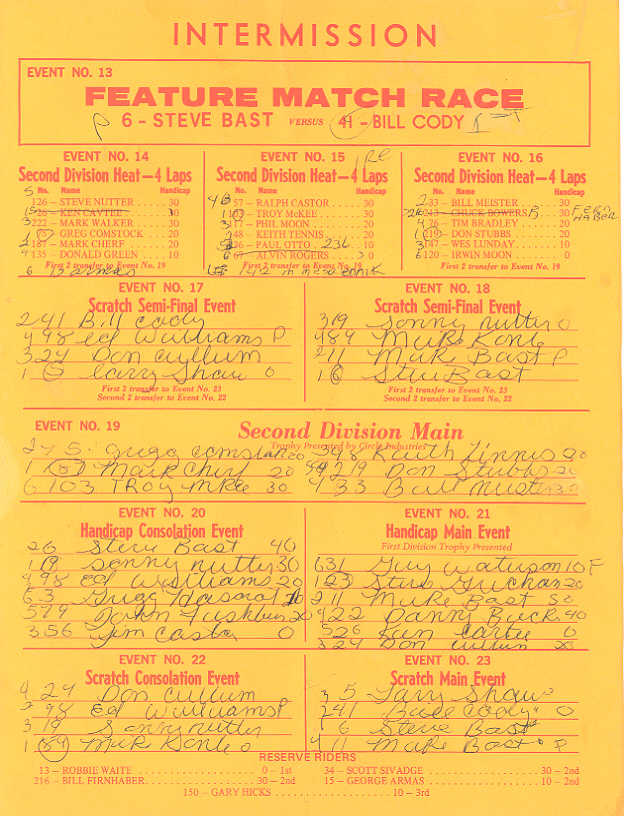 INTERMISSION
EVENT NO. 13
FEATURE MATCH RACE
P 6 - STEVE BAST VERSUS 41 - BILL CODY
EVENT NO. 14
Second Division Heat—4 Laps
No. Name Handicap
5 126 — STEVE NUTTER 30
26 — KEN CAVTEE 30
3 222 — MARK WALKER 30
GREG COMSTOCK 20
2 187 — MARK CHERF 20
4 135 — DONALD GREEN 10
First 2 transfer to Event No. 19
6
EVENT NO. 15
Second Division Heat—4 Laps
No. Name Handicap
57 — RALPH CASTOR 30
1 103 — TROY McKEE 30
317 — PHIL MOON 20
248 — KEITH TENNIS
126 — PAUL OTTO 236
67 — ALVIN ROGERS 0
First 2 transfer to Event No. 19
EVENT NO. 16
Second Division Heat—4 Laps
No. Name Handicap
2 33 — BILL MEISTER 30
243 — CHUCK BOWERS 30
4 26 — TIM BRADLEY 20
1 219 — DON STUBBS
3 147 — WES LUNDAY 10
6 120 — IRWIN MOON 0
First 2 transfer to Event No. 19
EVENT NO. 17
Scratch Semi-Final Event
2 41 Bill Cody
4 98 Ed Williams P
3 24 Don Cullum
1 5 Larry Shaw 0
First 2 transfer to Event No. 23
Second 2 transfer to Event No. 22
EVENT NO. 18
Scratch Semi-Final Event
3 19 Sonny Nutter 0
4 89 Mike Konle
2 11 Mike Bast P
1 6 Steve Bast
First 2 transfer to Event No. 23
Second 2 transfer to Event No. 22
EVENT NO. 19
Second Division Main
Trophy Presented by Circle Industries
2 75 Gregg Comstock 20
1 187 Mark Cherf 20
6 103 Troy McKee 30
Keith Tinnis 20
219 Don Stubbs 20
4 33 Bill Mister 30
EVENT NO. 20
Handicap Consolation Event
2 6 Steve Bast 40
1 19 Sonny Nutter 30
4 98 Ed Williams 20
6 3 Gregg
5 79 John
3 56 Jim Castro 0
EVENT NO. 21
Handicap Main Event
First Division Trophy Presented
6 31 Guy Waterson 10 F
1 23 Steve
2 11 Mike Bast 50
4 22 Danny Beck 40
5 26 Ken Cartie 0
3 24 Don Cullum 20
EVENT NO. 22
Scratch Consolation Event
4 24 Don Cullum
2 98 Ed Williams P
3 19 Sonny Nutter
1 89 Mike Konle 0
EVENT NO. 23
Scratch Main Event
3 5 Larry Shaw 0
2 41 Bill Cody 0
1 6 Steve Bast
4 11 Mike Bast P
RESERVE RIDERS
13 — ROBBIE WAITE 0 — 1st
216 — BILL FIRNHABER 30 — 2nd
34 — SCOTT SIVADGE 30 — 2nd
15 — GEORGE ARMAS 10 — 2nd
150 — GARY HICKS 10 — 3rd